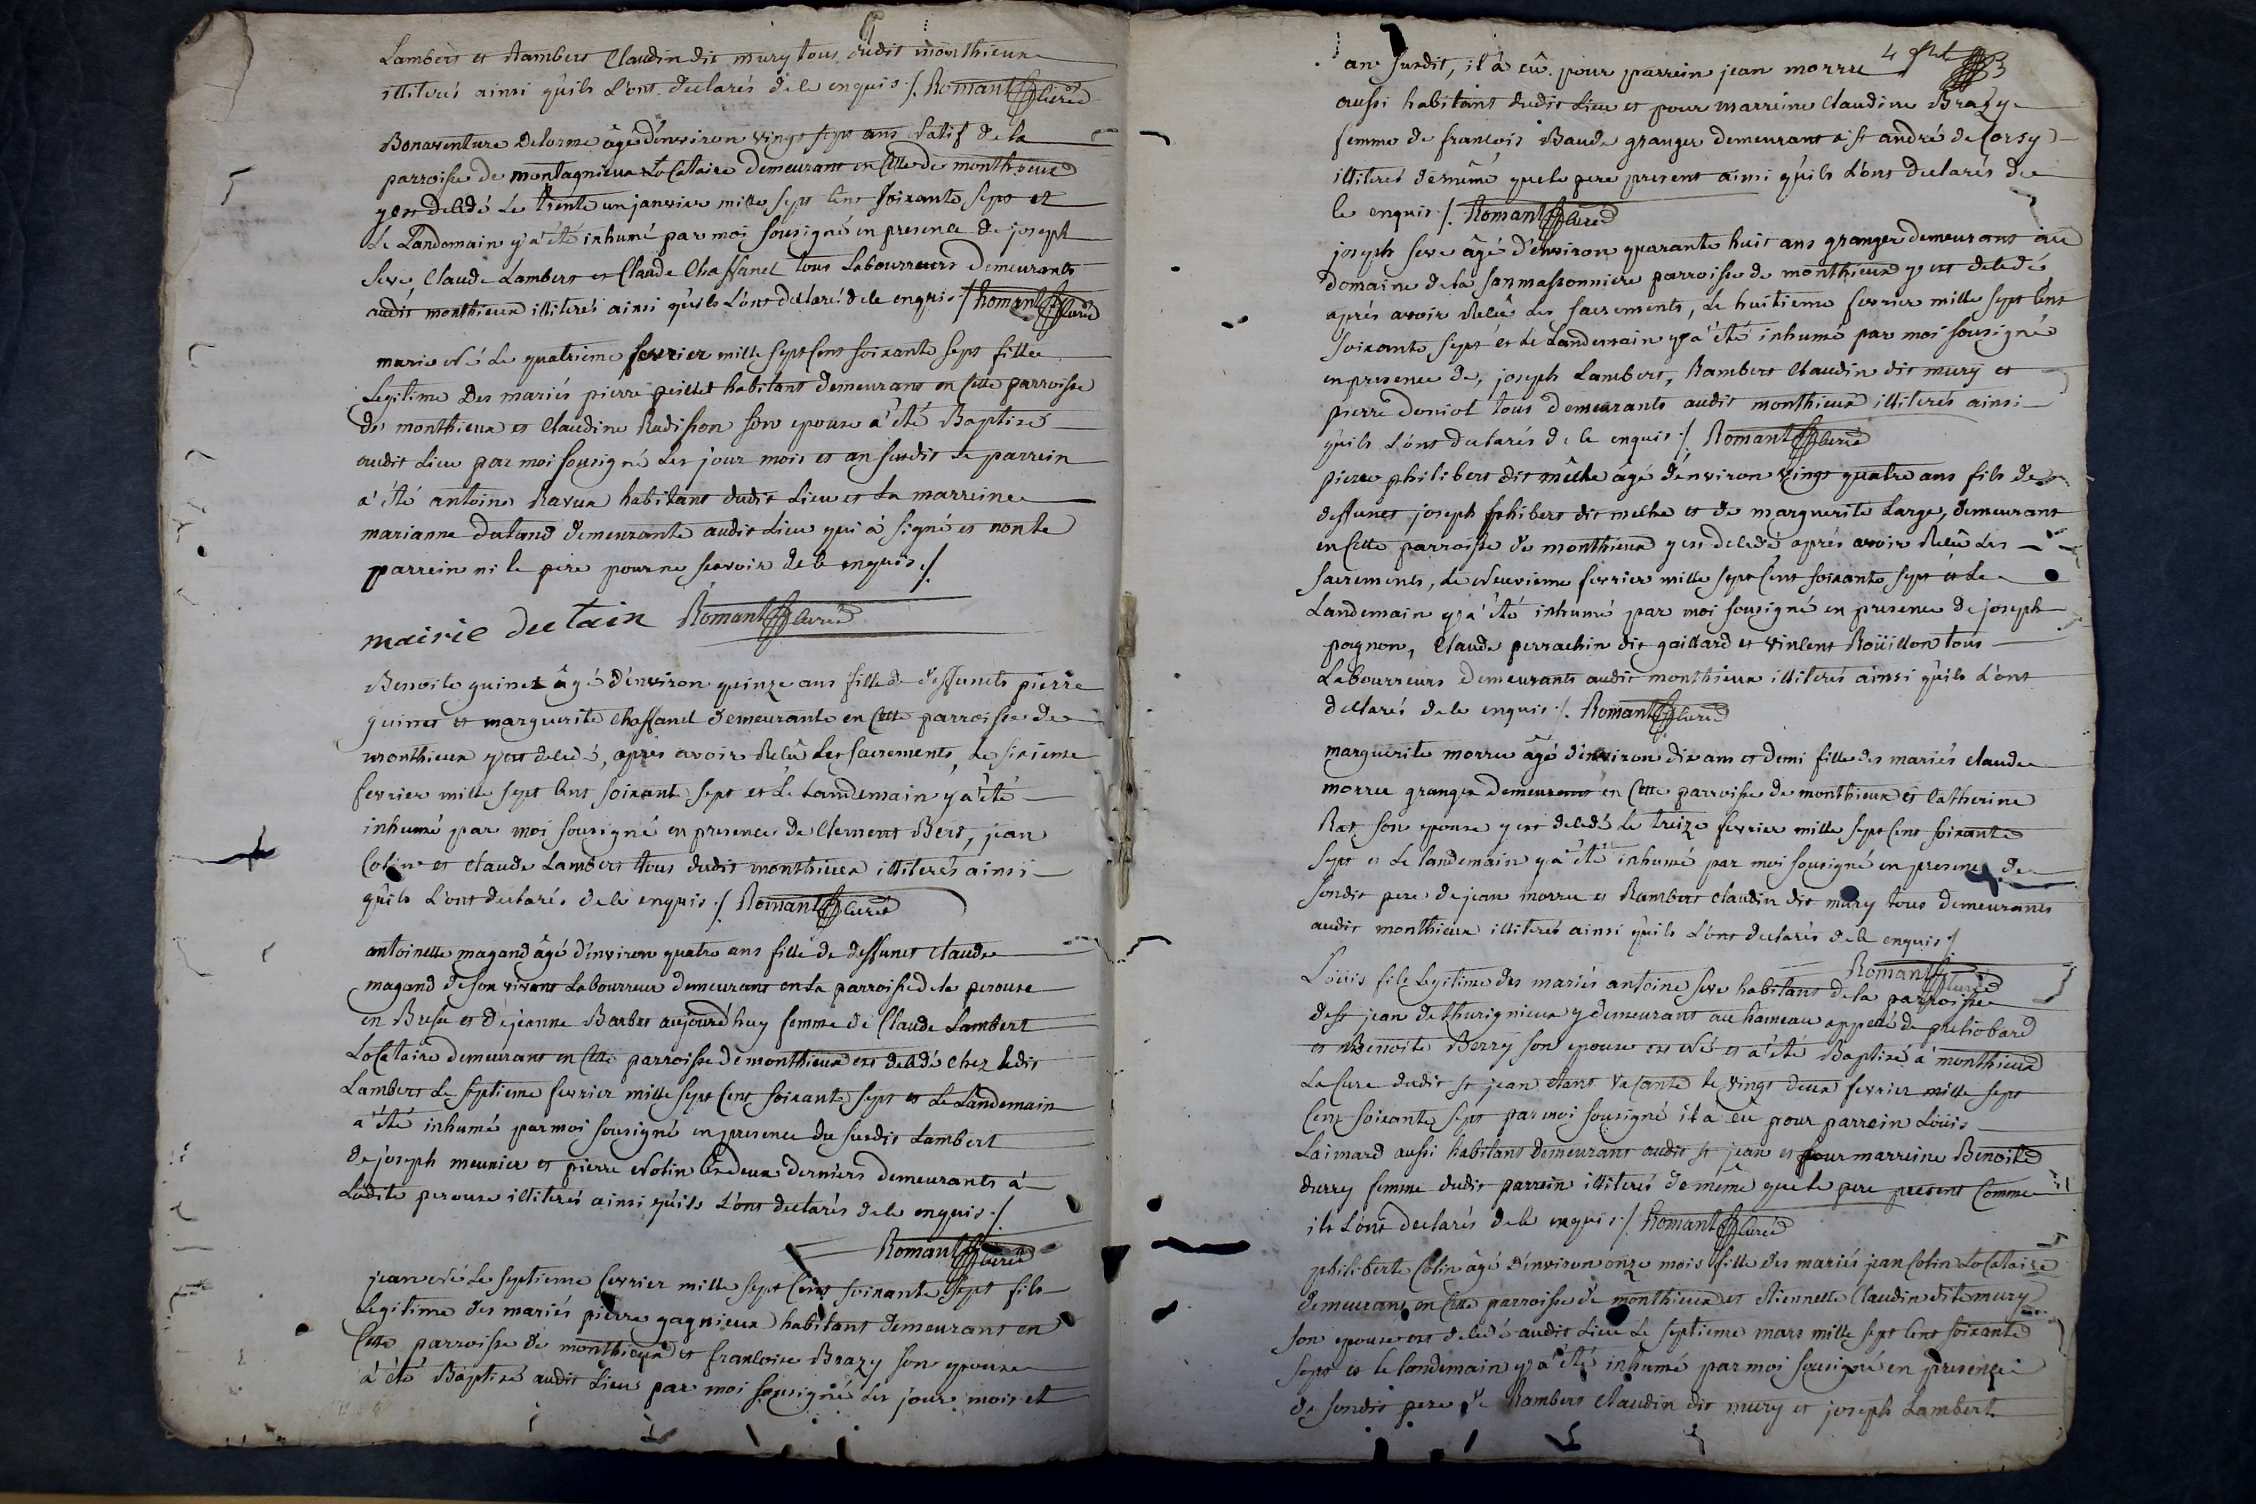 Lambert et Rambert Claudin dit mury tous dudit monthieux
illiterés ainsi quils L'ont declarés de ce enquis ./. Romant curéd
Bonaventure Delorme âgé d'environ vingt sept ans Natif de la
parroisse de montagnieux Locataire demeurant en Cette de monthieux
y est decedé Le trente un janvier mille sept Cent soixante sept et
Le Landemain y a été inhumé par moi sousigné en presence de joseph
seve Claude Lambert et Claude Chaffanel tous Labourreurs demeurants
audit monthieux illiterés ainsi quils L'ont declaré de ce enquis ./ Romant curéd
marie Né Le quatrieme fevrier mille sept Cent soixante sept fille
Legitime Des mariés pierre peillet habitant demeurant en Cette parroisse
de monthieux et Claudine Radisson son epouse a été Baptisé
audit Lieu par moi sousigné Les jour mois et an susdit Le parrein
a été antoine Ravux habitant dudit Lieu et La marreine
marianne dutand demeurante audit Lieu qui à signé et non le
parrein ni le pere pour ne scavoir de ce enquis ./
mairie dutain Romant curéd
Benoite guinet âgé d'environ quinze ans fille de deffuncts pierre
guinet et marguerite Chaffanel demeurante en Cette parroisse de
monthieux y est decedé, aprés avoir Reçû Les sacrements, Le sixieme
fevrier mille sept Cent soixant sept et Le Landemain y a été
inhumé par moi sousigné en presence de Clement Bert, jean
Colin et Claude Lambert tous dudit monthieux illiterés ainsi
quils L'ont declarés de ce enquis ./ Romant curéd
antoinelle magand âgé d'environ quatre ans fille de deffunct Claude
magand de son vivant Labourreur demeurant en La parroisse de la perouse
en Bresse et de jeanne Barbet aujourd'huy femme de Claude Lambert
Locataire demeurant en Cette parroisse de monthieux est decedé Chez Ledit
Lambert Le septieme fevrier mille sept Cent soixante sept et Le Landemain
a été inhumé par moi sousigné en presence du susdit Lambert
de joseph meunier et pierre Nolin Ces deux derniers demeurants à
Ladite perouse illiterés ainsi quils L'ont declarés de ce enquis ./
Romant curéd
jean Né Le septieme fevrier mille sept Cent soixante sept fils
Legitime des mariés pierre gagnieux habitant demeurant en
Cette parroisse de monthieux et francoise Brazy son epouse
a été Baptisé audit Lieu par moi sousigné Les jour mois et
4
an susdit, il à eû pour parrein jean morru
aussi habitant dudit Lieu et pour marreine Claudine Brazy
femme de francois Baude granger demeurant à st andré de Corsy
illiterés de même que le pere present ainsi quils L'ont declarés de
ce enquis ./. Romant curéd
joseph seve âgé d'environ quarante huit ans granger demeurant au
Domaine de la sanmassonniere parroisse de monthieux y est decedé
aprés avoir Reçû Les sacrements, Le huitieme fevrier mille sept Cent
soixante sept et Le Landemain y a été inhumé par moi sousigné
en presence de, joseph Lambert, Rambert Claudin dit mury et
pierre doniol tous demeurants audit monthieux illiterés ainsi
quils L'ont declarés de ce enquis ./ Romant curéd
pierre philibert dit melhe âgé d'environ vingt quatre ans fils de
deffunct joseph phibert dit melhe et de marguerite Large, demeurant
en Cette parroisse de monthieux y est decedé aprés avoir Reçû Les
sacrements, Le Neuvieme fevrier mille sept Cent soixante sept et Le
Landemain y a été inhumé par moi sousigné en presence de joseph
pognon, Claude perrachin dit gaillard et vincent Roüillon tous
Labourreurs demeurants audit monthieux illiterés ainsi quils L'ont
declarés de ce enquis ./. Romant curéd
marguerite morru âgé d'environ dix ans et demi fille des mariés claude
morru granger demeurant en Cette parroisse de monthieux et Catherine
Rat son epouse y est decedé Le treize fevrier mille sept Cent soixante
sept et Le landemain y a été inhumé par moi sousigné en presence de
sondit pere de jean morru et Rambert Claudin dit mury tous demeurants
audit monthieux illiterés ainsi quils L'ont declarés de ce enquis ./
Romant curéd
Loüis fils Legitime des mariés antoine seve habitant de la parroisse
de st jean de thurignieux y demeurant au hameau appellé de pretiobard
et Benoite Berry son epouse est Né et a été Baptisé à monthieux
La Cure dudit st jean etant vacante le vingt deux fevrier mille sept
Cent soixante sept par moi sousigné il a eû pour parrein Loüis
Laimard aussi habitant demeurant audit st jean et pour marreine Benoite
durry femme dudit parrein illiterés de même que le pere present Comme
ils L'ont declarés de ce enquis ./ Romant curéd
philiberte Colin âgé d'environ onze mois fille des mariés jean Colin Locataire
demeurant en Cette parroisse de monthieux et Etiennette Claudin dite mury
son epouse est decedé audit Lieu Le septieme mars mille sept Cent soixante
sept et le landemain y a été inhumé par moi sousigné en presence
de sondit pere de Rambert Claudin dit mury et joseph Lambert